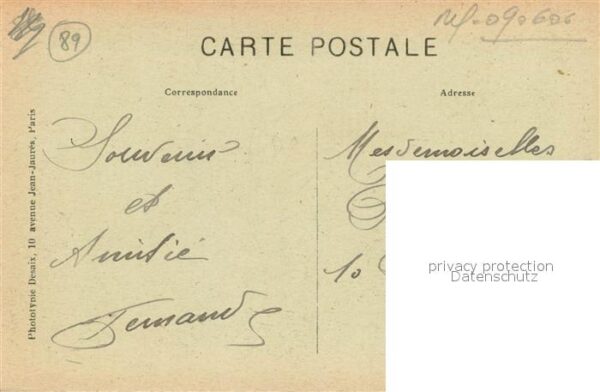 89
Réf. 090606
CARTE POSTALE
Correspondance
Adresse
Souvenir
et
Amitié
Fernand
Mesdemoiselles
10
privacy protection
Datenschutz
Phototypie Desaix, 10 avenue Jean-Jaurès, Paris